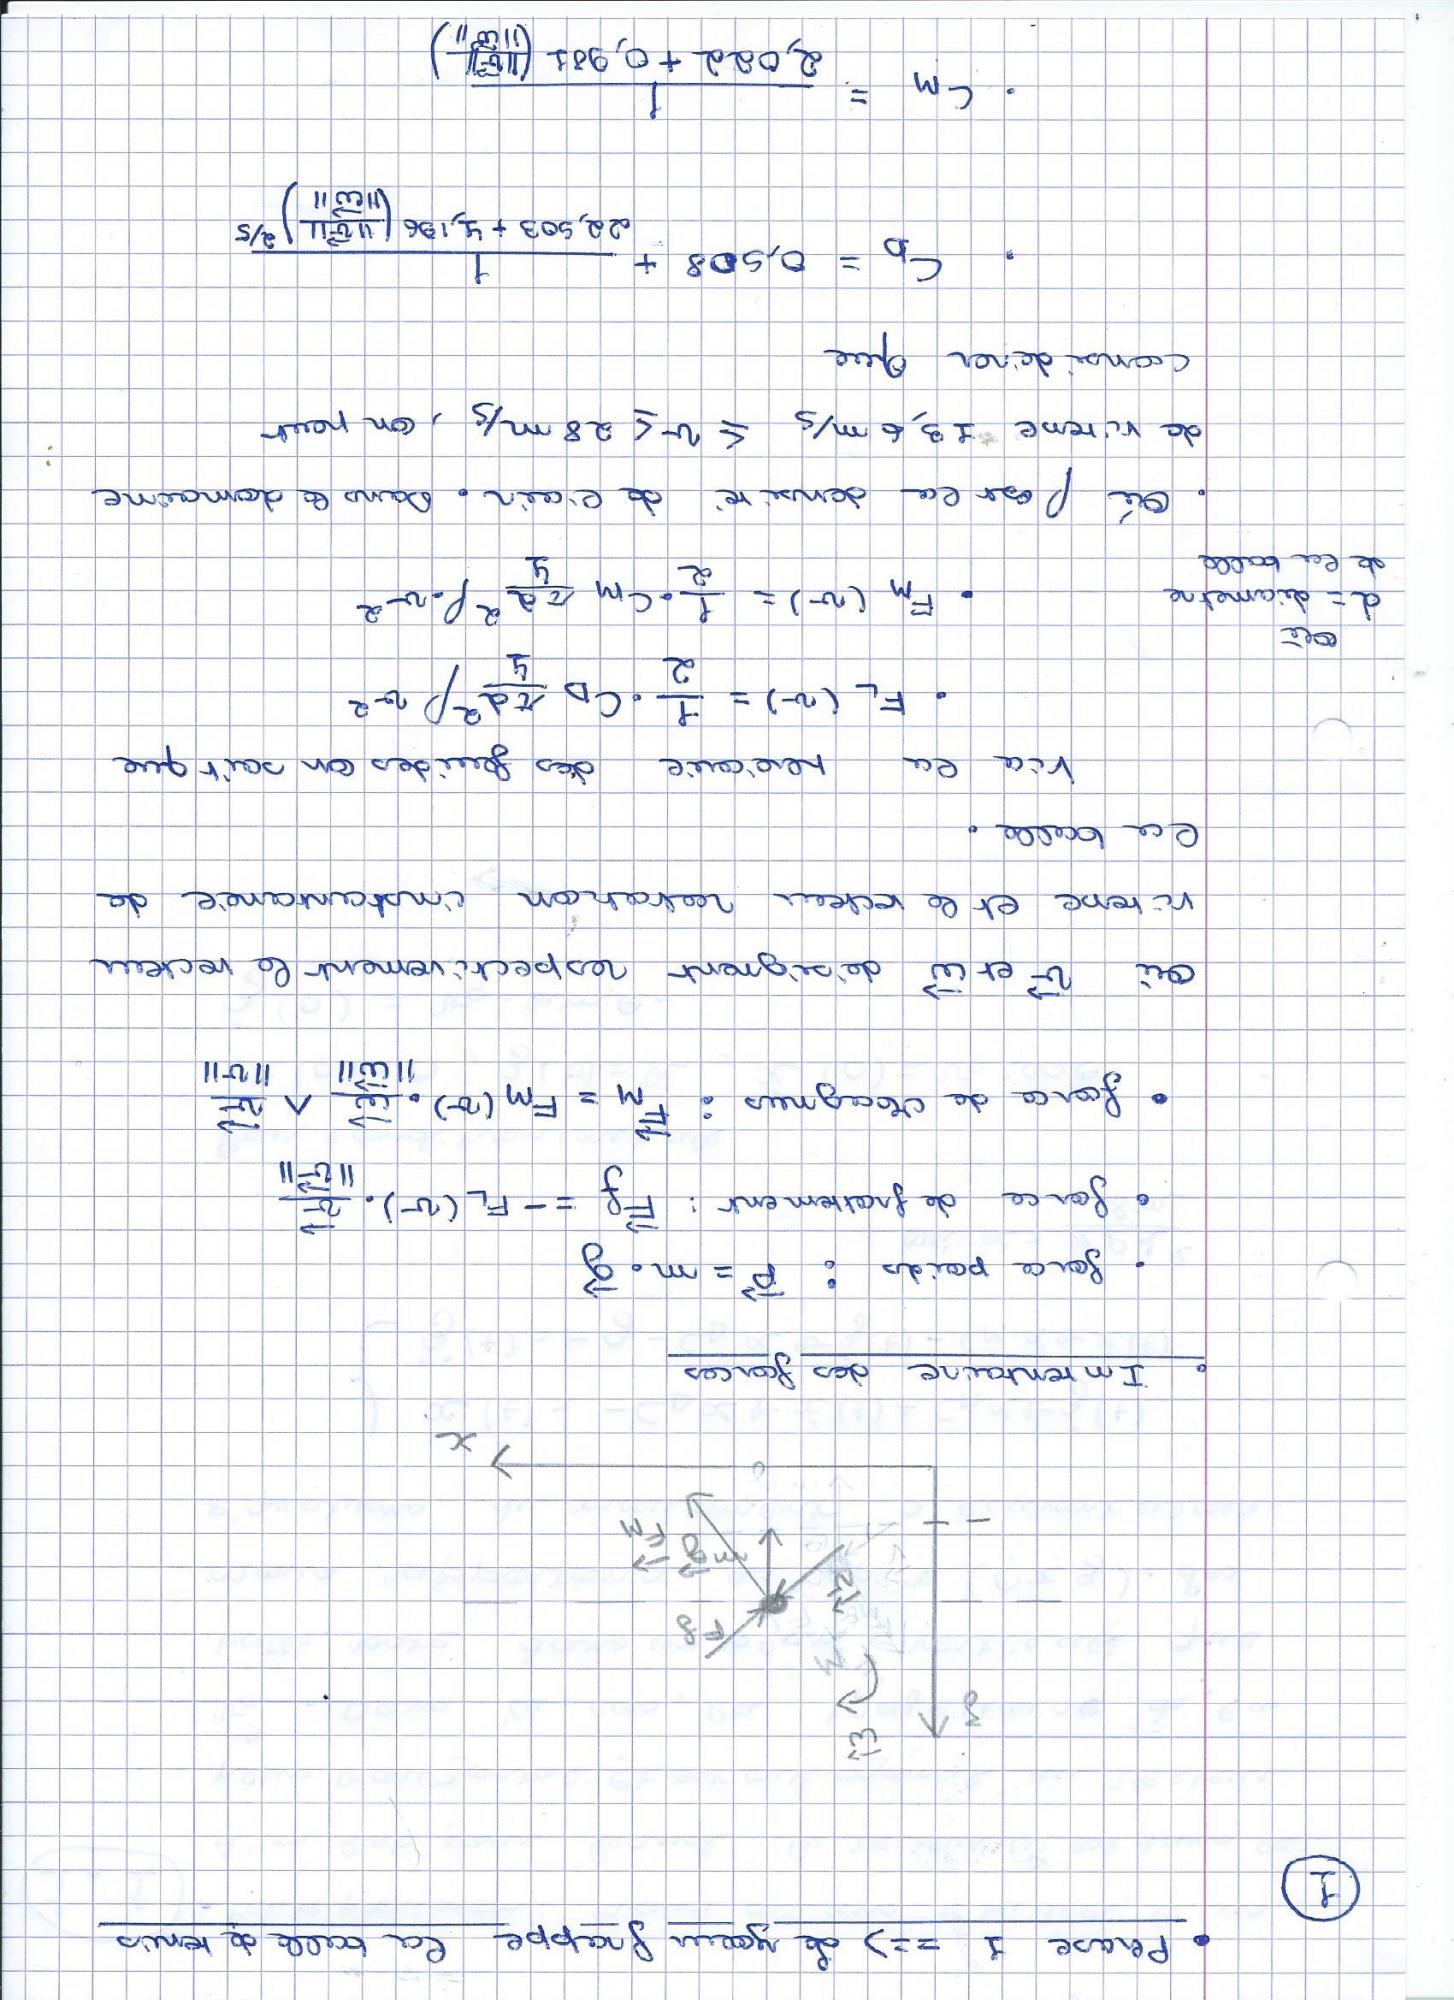 • Phase 1 ==> Le joueur frappe la balle de tennis
1
z
ω
M
v
Ff
mg
FM
o
x
• Inventaire des forces
• force poids : P = m · g
• force de frottement : Ff = - FL (v) · v / ||v||
• force de Magnus : FM = FM (v) · ω / ||ω|| ∧ v / ||v||
où v et ω désignent respectivement le vecteur
vitesse et le vecteur rotation instantanée de
la balle.
Via la mécanique des fluides on sait que
• FL (v) = 1/2 · CD πd²/4 ρ v²
• FM (v) = 1/2 · CM πd²/4 ρ · v²
où
d = diametre
de la balle
• Où ρ est la densité de l'air. Dans le domaine
de vitesse 13,6 m/s ≤ v ≤ 28 m/s, on peut
considérer que
• CD = 0,508 + 1 / (22,503 + 4,196 (||v|| / ||ω||)^2/5)
• CM = 1 / (2,022 + 0,981 (||v|| / ||ω||))